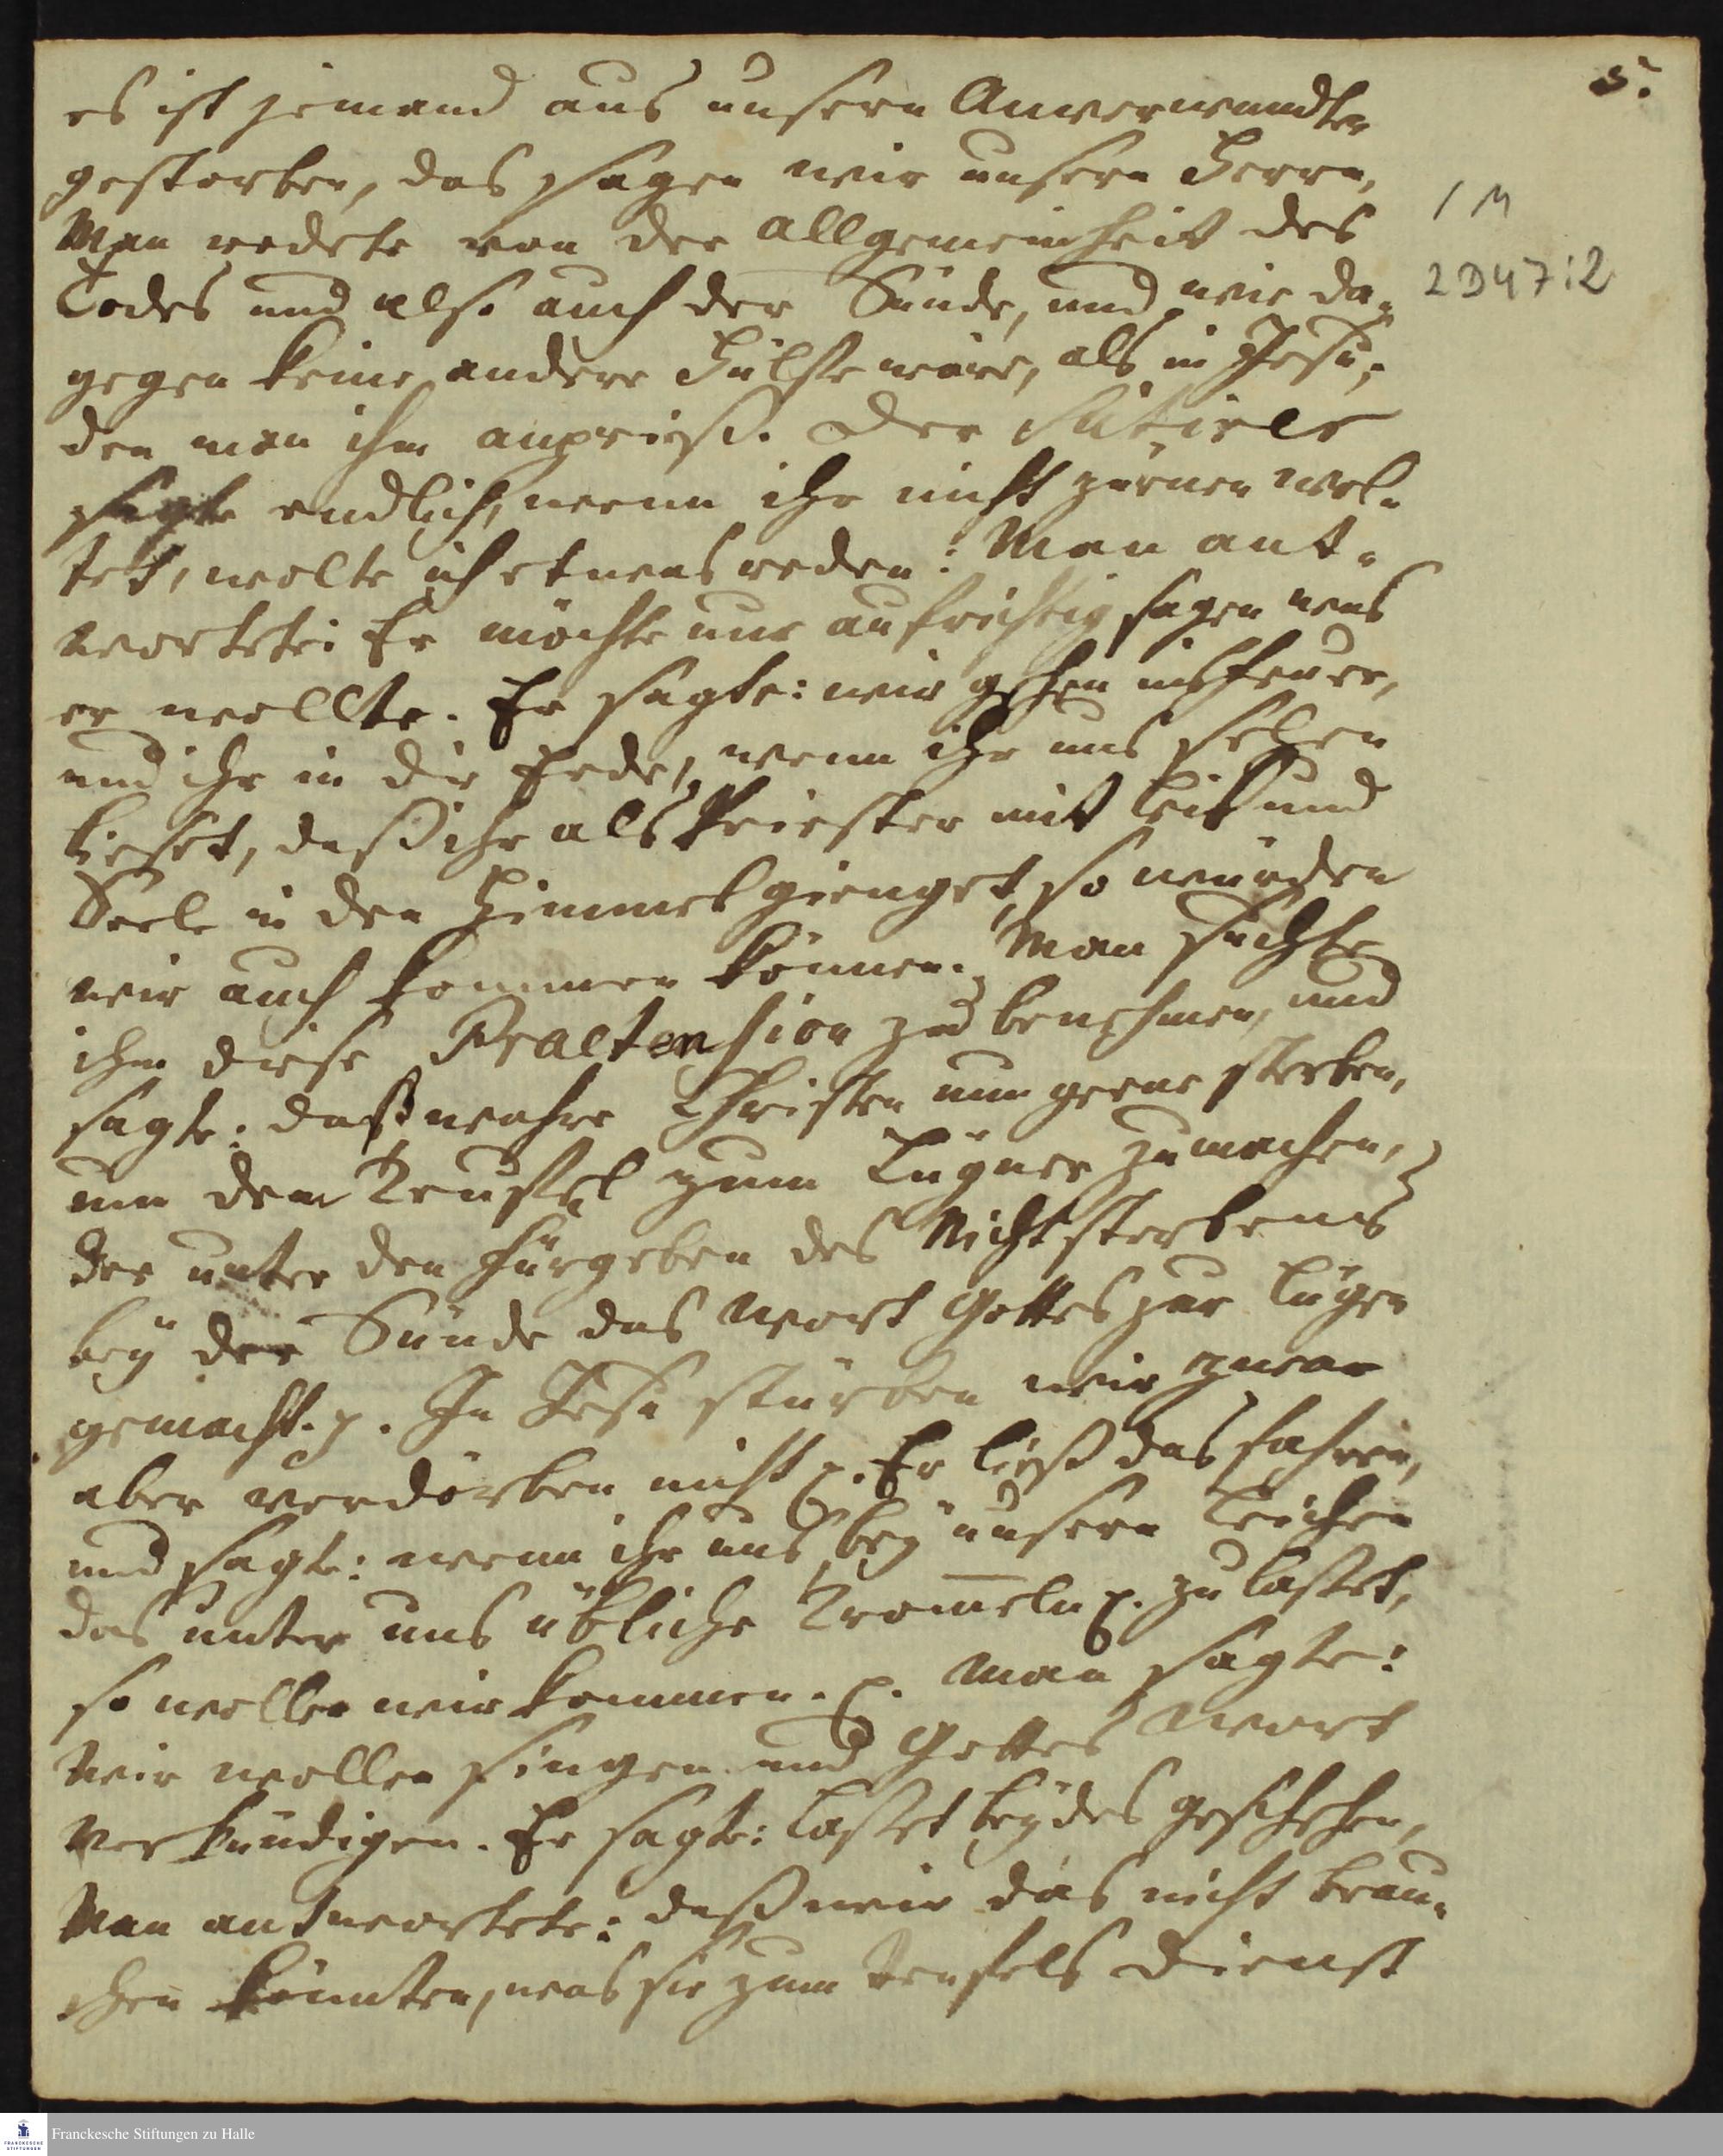 5.
es ist jemand aus unsern Anverwandten
gestorben, das sagen wir unsern Herrn,
1 M
Man redete von der Allgemeinheit des
2 D 47:2
Todes und also auch der Sünde, und wie da-
gegen keine andere Hülfe wäre, als in Jesu,
den man ihm anprieß. Der
sagte endlich, wenn ihr nicht zürnen wol-
tet, wolte ich etwas reden: Man ant-
wortete: Er möchte nur aufrichtig sagen was
er wollte. Er sagte: wir gehen ins Feuer,
und ihr in die Erde, wenn ihr uns sehen
ließet, daß ihr als Priester mit Leib und
Seele in den Himmel gienget, so würden
wir auch kommen können. Man suchte
ihm diese Praetension zu benehmen, und
sagte: daß wahre Christen nun gerne sterben,
um den Teuffel zum Lügner zu machen,
der unter den Fürgeben des Nichtsterbens
bey der Sünde das Wort Gottes zur Lügen
gemacht. p. In Jesu stürben wir zwar
aber verdörben nicht p. Er ließ das fahren,
und sagte: wenn ihr uns bey unsern Leichen
das unter uns übliche Trom̄eln p. zu lasset,
so wollen wir kommen. p. Man sagte:
Wir wollen singen und Gottes Wort
verkündigen. Er sagte: lasset beydes geschehen,
Man antwortete: daß wir das nicht brau-
chen könnten, was sie zum Teufels Dienst
Franckesche Stiftungen zu Halle